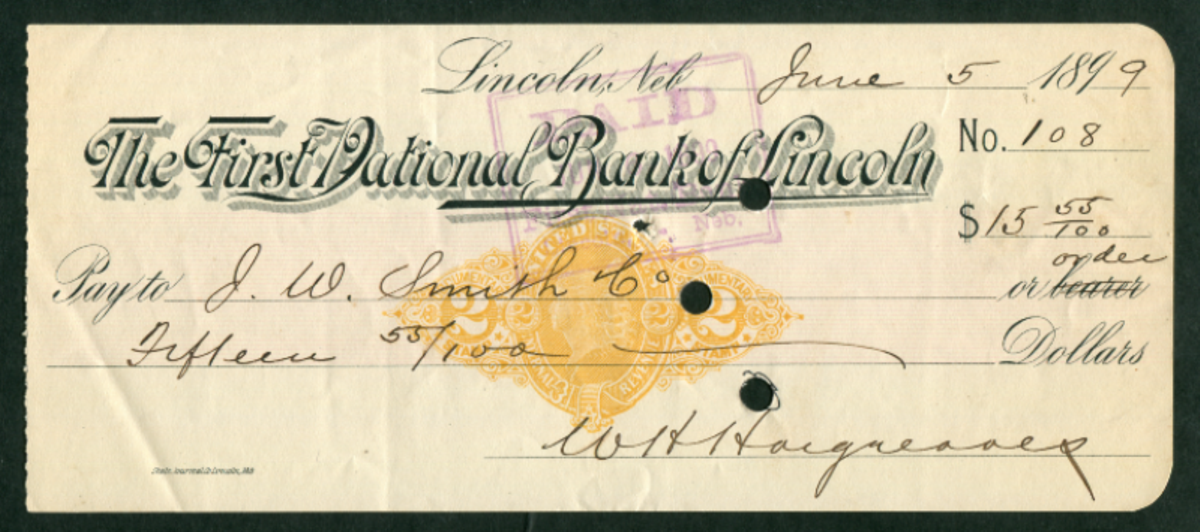 Lincoln, Neb. June 5 1899
PAID
The First National Bank of Lincoln
No. 108
Neb.
$15 55/100
order
Pay to J. W. Smith Co or bearer
UNITED STATES
2 2 2 2
Fifteen 55/100 Dollars
W H Hargreaves
State Journal Co Lincoln, Neb